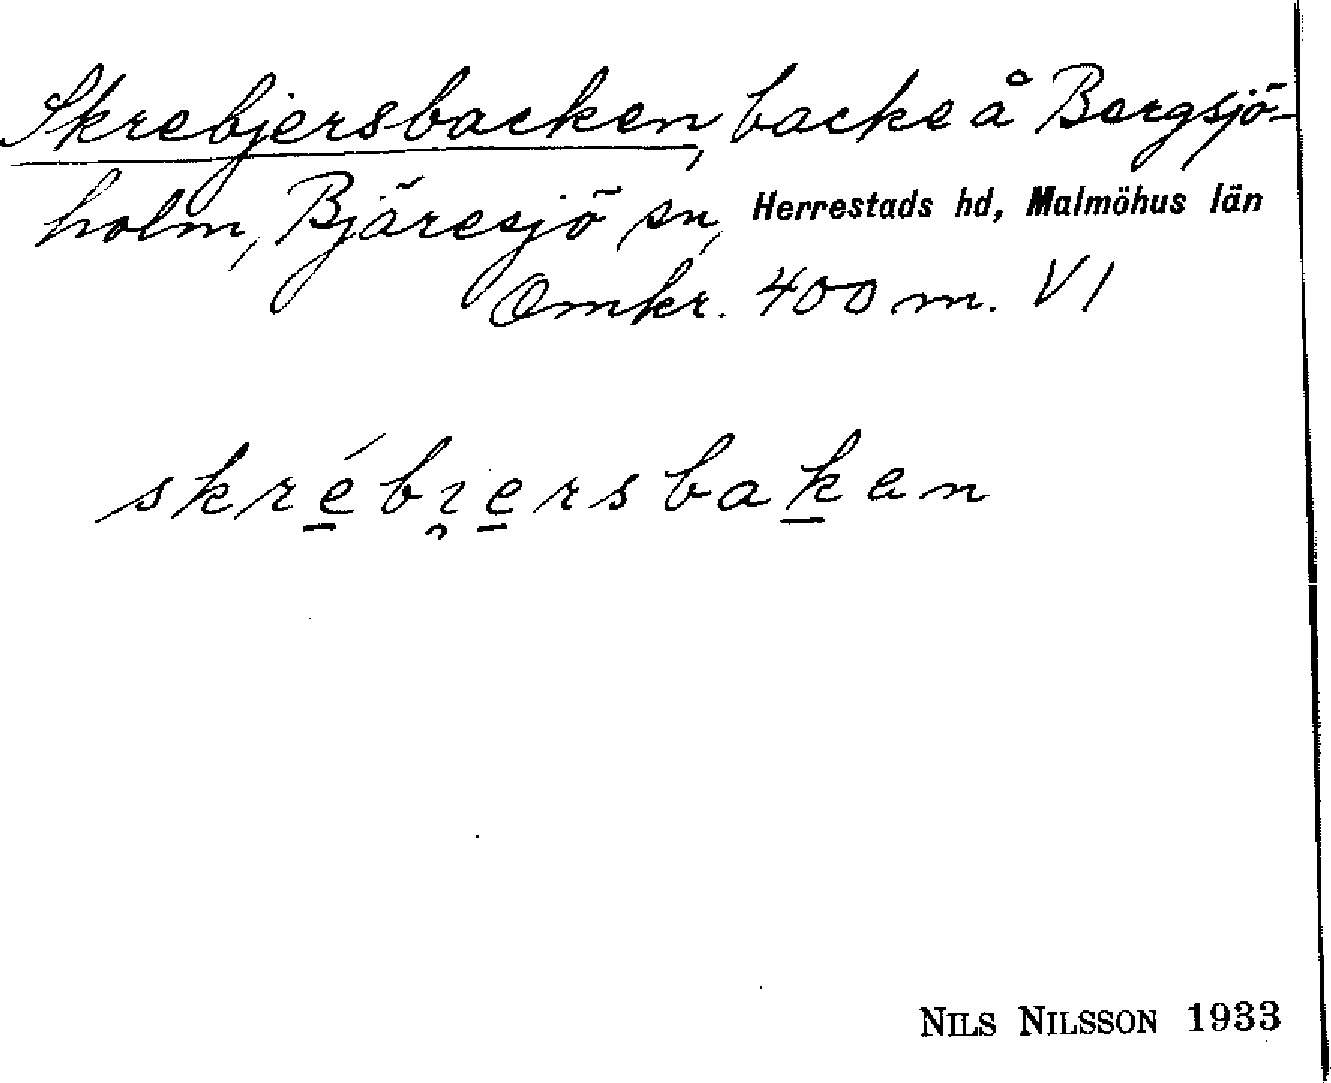 Skrebjersbacken, backe å Bergsjö-
holm, Bjäresjö sn, Herrestads hd, Malmöhus län
Omkr. 400 m. VI
skrébı̯ersbaken
NILS NILSSON 1933